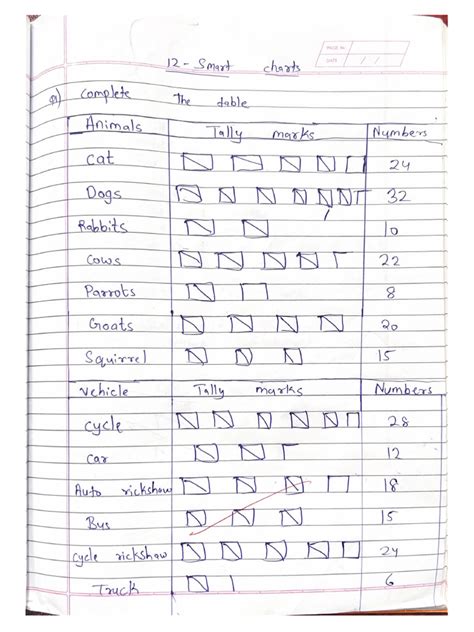 PAGE No.
DATE / /
12 - Smart charts
Q1) Complete The table
Animals Tally marks Numbers
cat 24
Dogs 32
Rabbits 10
Cows 22
Parrots 8
Goats 20
Squirrel 15
Vehicle Tally marks Numbers
cycle 28
car 12
Auto rickshaw 18
Bus 15
cycle rickshaw 24
Truck 6